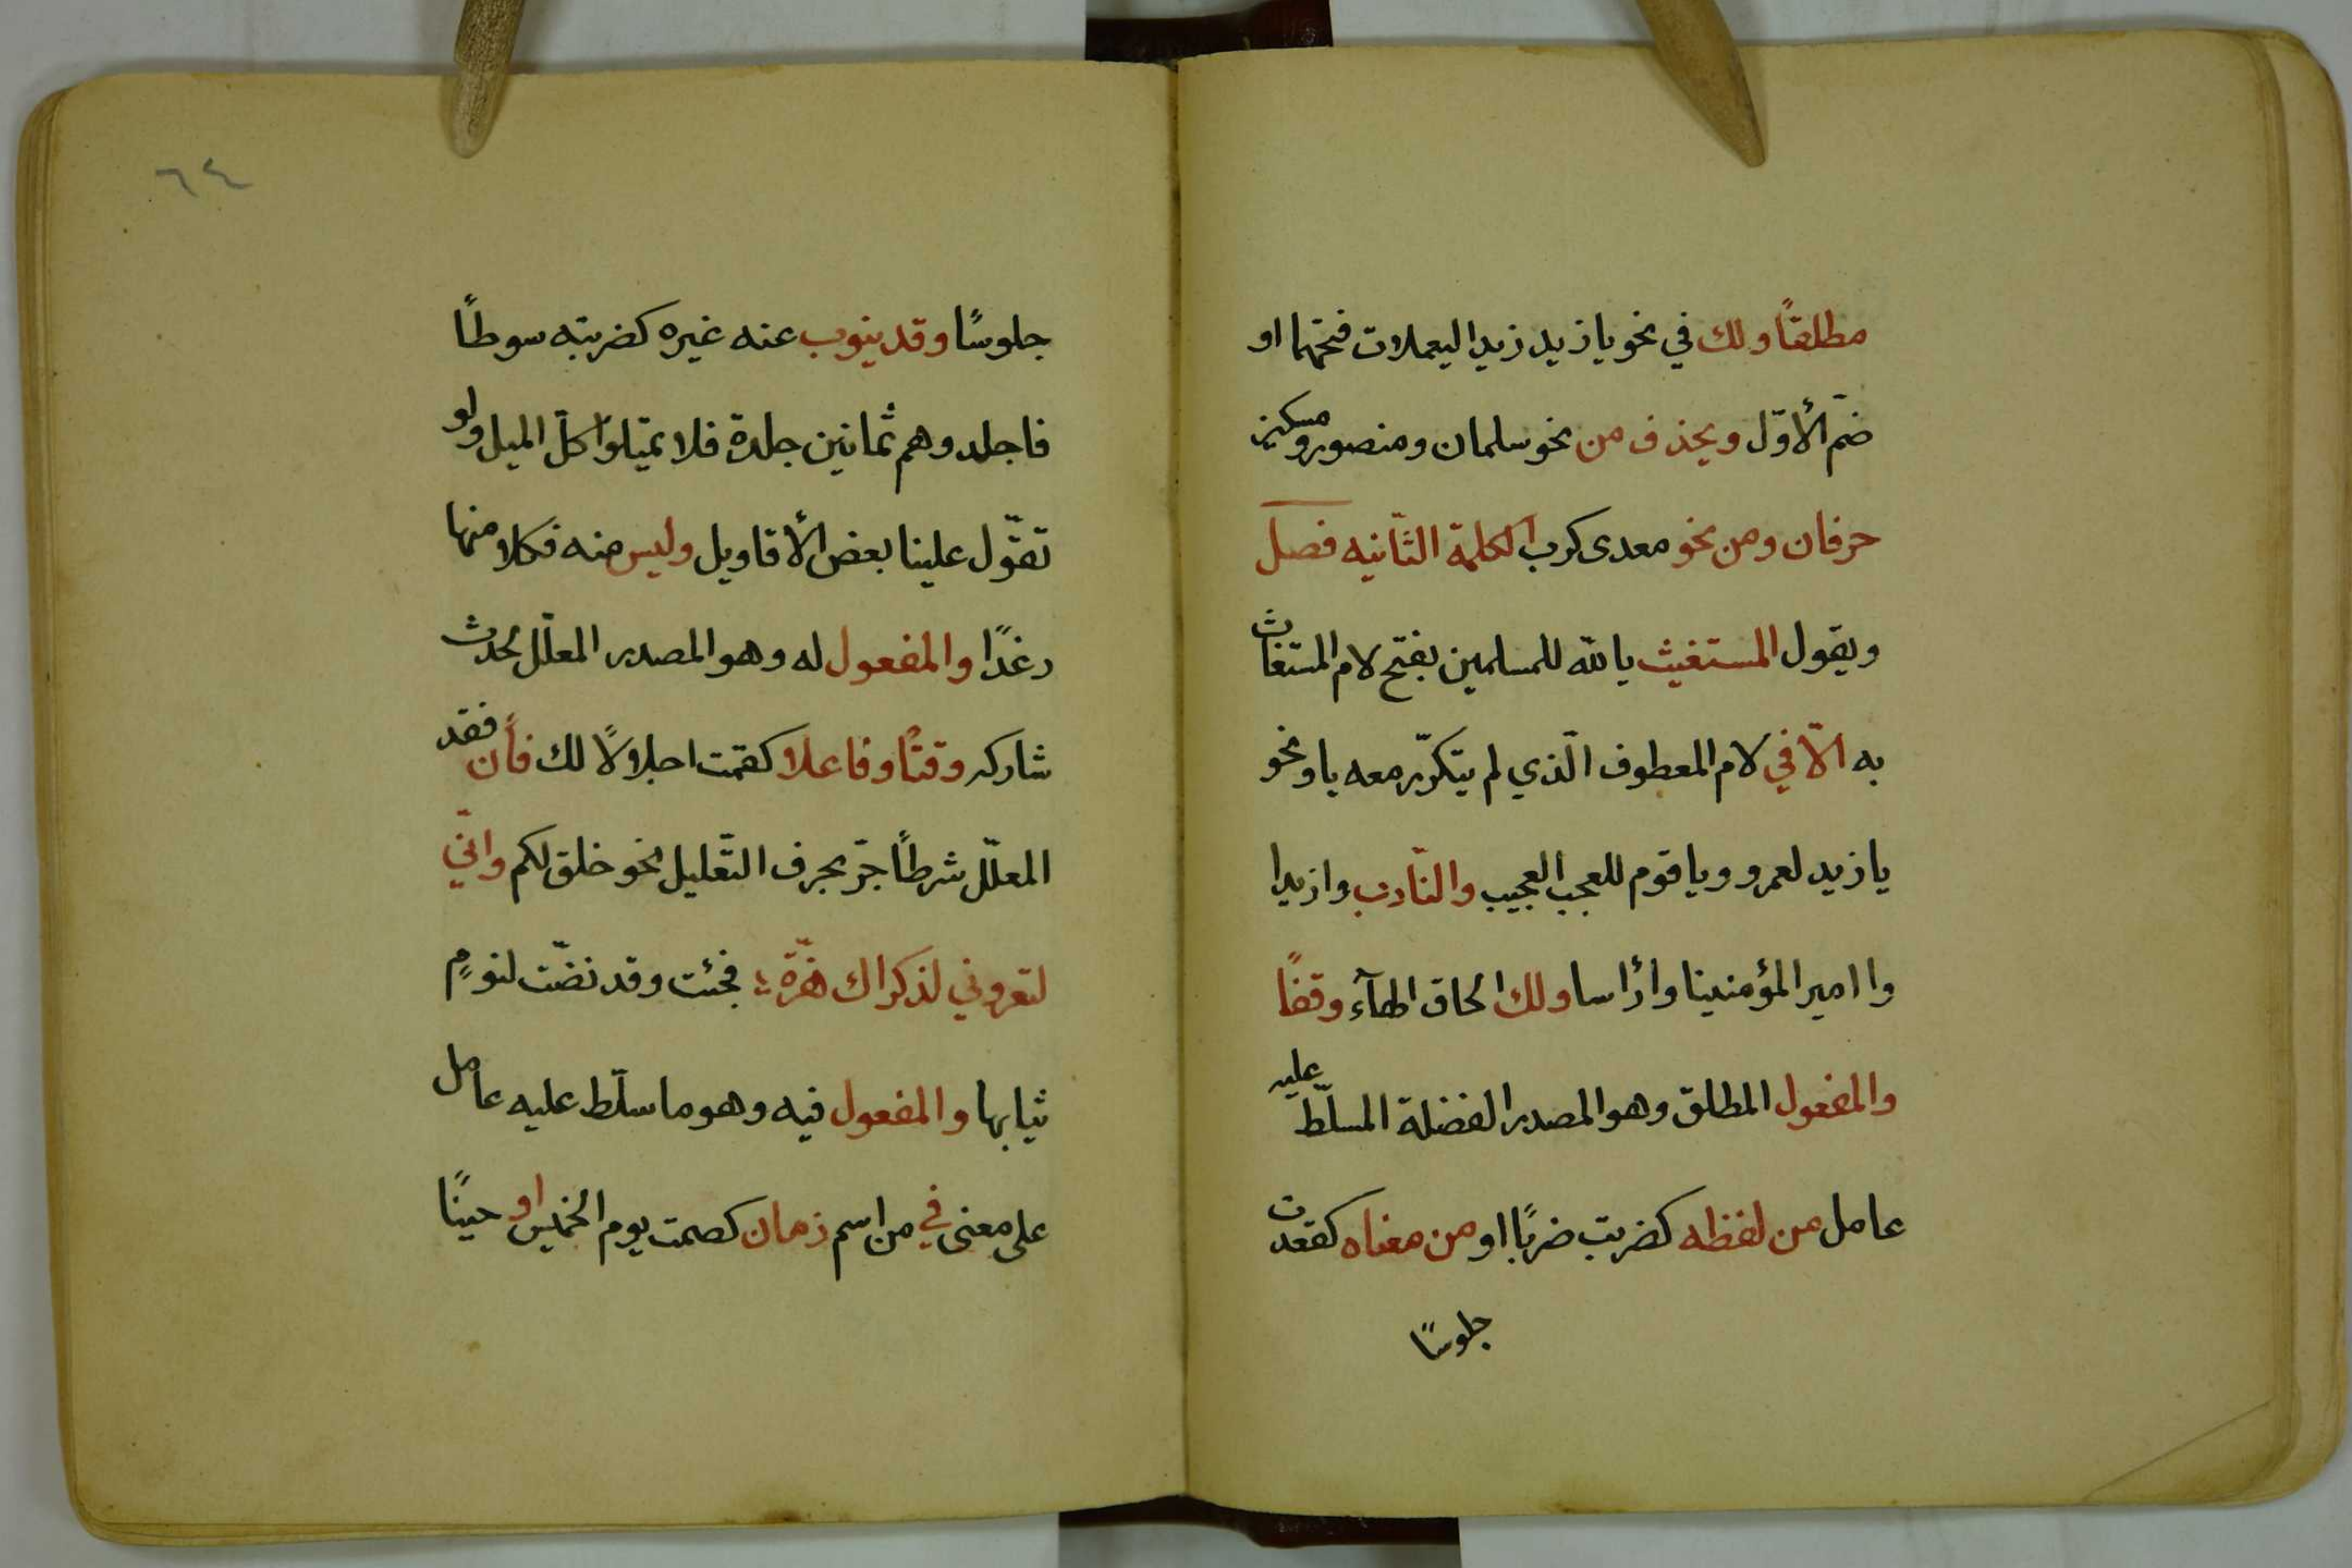 مطلقًا ولك في نحو يا زيد زيد اليعملات فتحهما او
ضمّ الأوّل ويحذف من نحو سلمان ومنصور ومسكين
حرفان ومن نحو معدى كرب الكلمة الثّانيه فصل
ويقول المستغيث يا لله للمسلمين بفتح لام المستغاث
به الّا في لام المعطوف الّذي لم يتكرّر معه يا ونحو
يا زيد لعمرو ويا قوم للعجب العجيب والنّادب وازيدا
وا امير المؤمنينا وارأسا ولك الحاق الهآء وقفًا
والمفعول المطلق وهو المصدر الفضلة المسلّط عليه
عامل من لفظه كضربت ضربًا او من معناه كقعدت
جلوسًا
٦٤
جلوسًا وقد ينوب عنه غيره كضربته سوطاً
فاجلدوهم ثمانين جلدة فلا تميّلوا كلّ الميل ولو
تقوّل علينا بعض الأقاويل وليس منه فكلا منها
رغدًا والمفعول له وهو المصدر المعلّل لحدث
شاركه وقتًا وفاعلا كقمت اجلالًا لك فأن فقد
المعلّل شرطاً جرّ بحرف التّعليل نحو خلق لكم وانّي
لتعروني لذكراك هزّة ؛ فجئت وقد نضّت لنومٍ
ثيابها والمفعول فيه وهو ما سلّط عليه عامل
على معنى في من اسم زمان كصمت يوم الخميس او حينًا